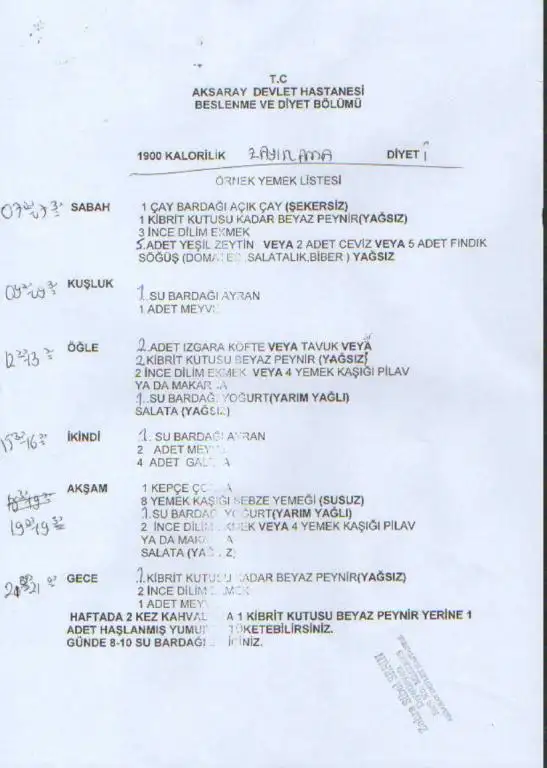 T.C
AKSARAY DEVLET HASTANESİ
BESLENME VE DİYET BÖLÜMÜ
1900 KALORİLİK ZAYIFLAMA DİYETİ
ÖRNEK YEMEK LİSTESİ
SABAH 1 ÇAY BARDAĞI AÇIK ÇAY (ŞEKERSİZ)
1 KİBRİT KUTUSU KADAR BEYAZ PEYNİR(YAĞSIZ)
3 İNCE DİLİM EKMEK
5.ADET YEŞİL ZEYTİN VEYA 2 ADET CEVİZ VEYA 5 ADET FINDIK
SÖĞÜŞ (DOMATES ,SALATALIK,BİBER ) YAĞSIZ
KUŞLUK
1.SU BARDAĞI AYRAN
1 ADET MEYVE
ÖĞLE 2.ADET IZGARA KÖFTE VEYA TAVUK VEYA
2.KİBRİT KUTUSU BEYAZ PEYNİR (YAĞSIZ)
2 İNCE DİLİM EKMEK VEYA 4 YEMEK KAŞIĞI PİLAV
YA DA MAKARNA
1..SU BARDAĞI YOĞURT(YARIM YAĞLI)
SALATA (YAĞSIZ)
İKİNDİ 1. SU BARDAĞI AYRAN
2 ADET MEYVE
4 ADET GALETA
AKŞAM 1 KEPÇE ÇORBA
8 YEMEK KAŞIĞI SEBZE YEMEĞİ (SUSUZ)
1.SU BARDAĞI YOĞURT(YARIM YAĞLI)
2 İNCE DİLİM EKMEK VEYA 4 YEMEK KAŞIĞI PİLAV
YA DA MAKARNA
SALATA (YAĞSIZ)
GECE 1.KİBRİT KUTUSU KADAR BEYAZ PEYNİR(YAĞSIZ)
2 İNCE DİLİM EKMEK
1 ADET MEYVE
HAFTADA 2 KEZ KAHVALTIDA 1 KİBRİT KUTUSU BEYAZ PEYNİR YERİNE 1
ADET HAŞLANMIŞ YUMURTA TÜKETEBİLİRSİNİZ.
GÜNDE 8-10 SU BARDAĞI SU İÇİNİZ.